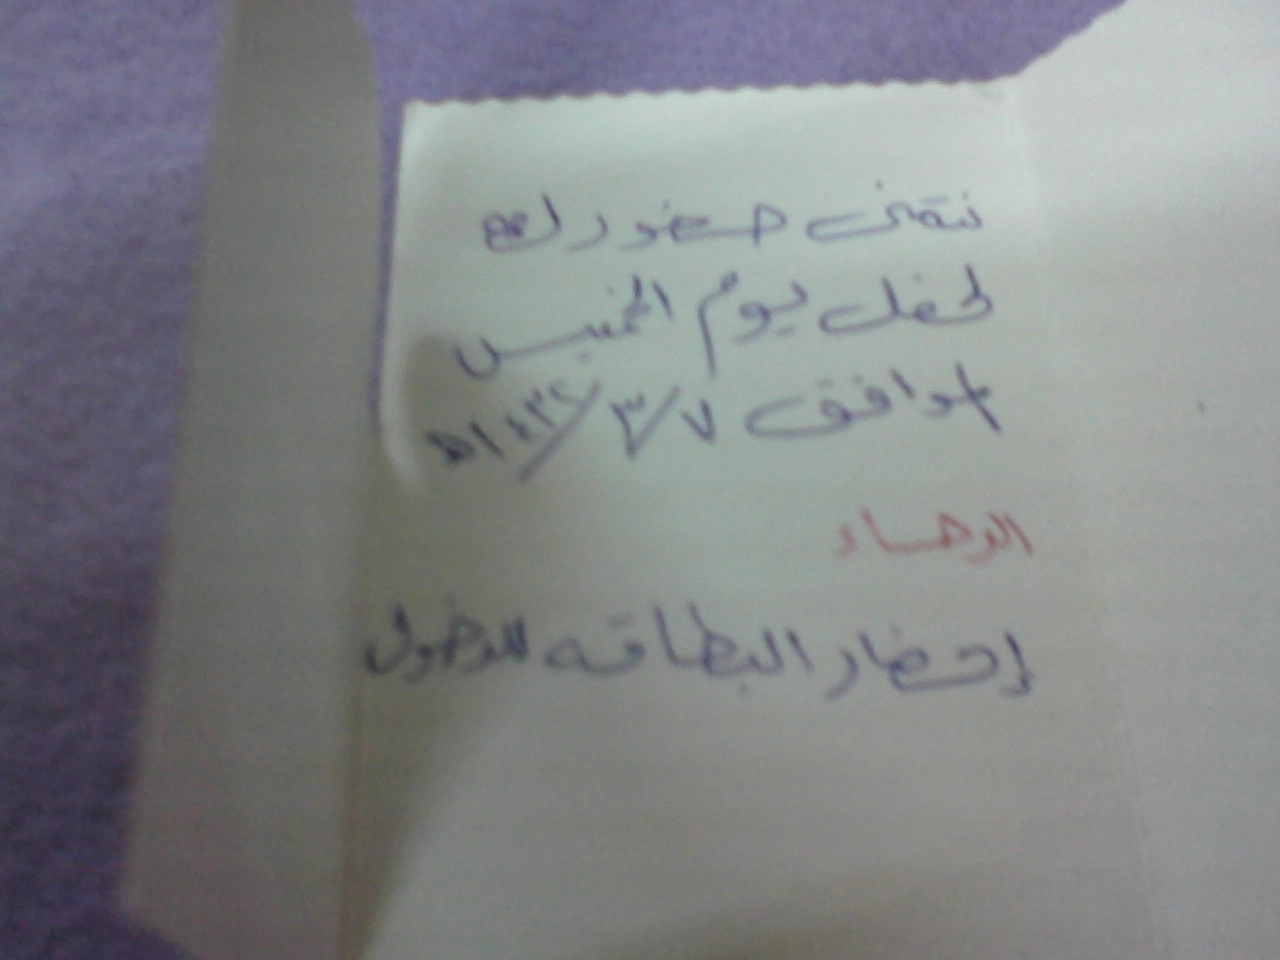 نتمنى حضوركم
لحفل يوم الخميس
الموافق ٧/٣/١٤٣٢هـ
الرجاء
إحضار البطاقه للدخول